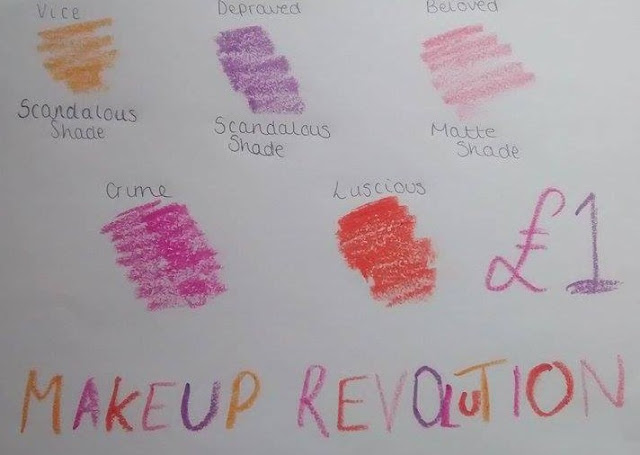 Vice
Depraved
Beloved
Scandalous
Shade
Scandalous
Shade
Matte
Shade
Crime
Luscious
£1
MAKEUP REVOLUTION